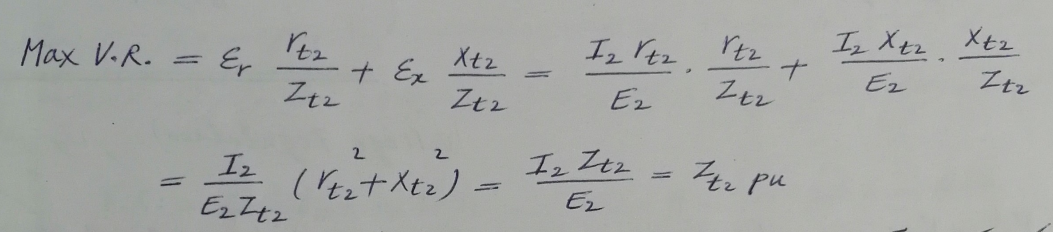 Max V.R. = εr rt2/Zt2 + εx Xt2/Zt2 = I2 rt2/E2 . rt2/Zt2 + I2 Xt2/E2 . Xt2/Zt2
= I2/E2Zt2 (rt2² + Xt2²) = I2 Zt2/E2 = Zt2 pu